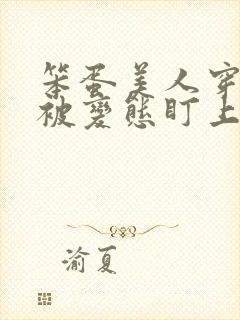 笨蛋美人穿
被變態盯上
渝夏